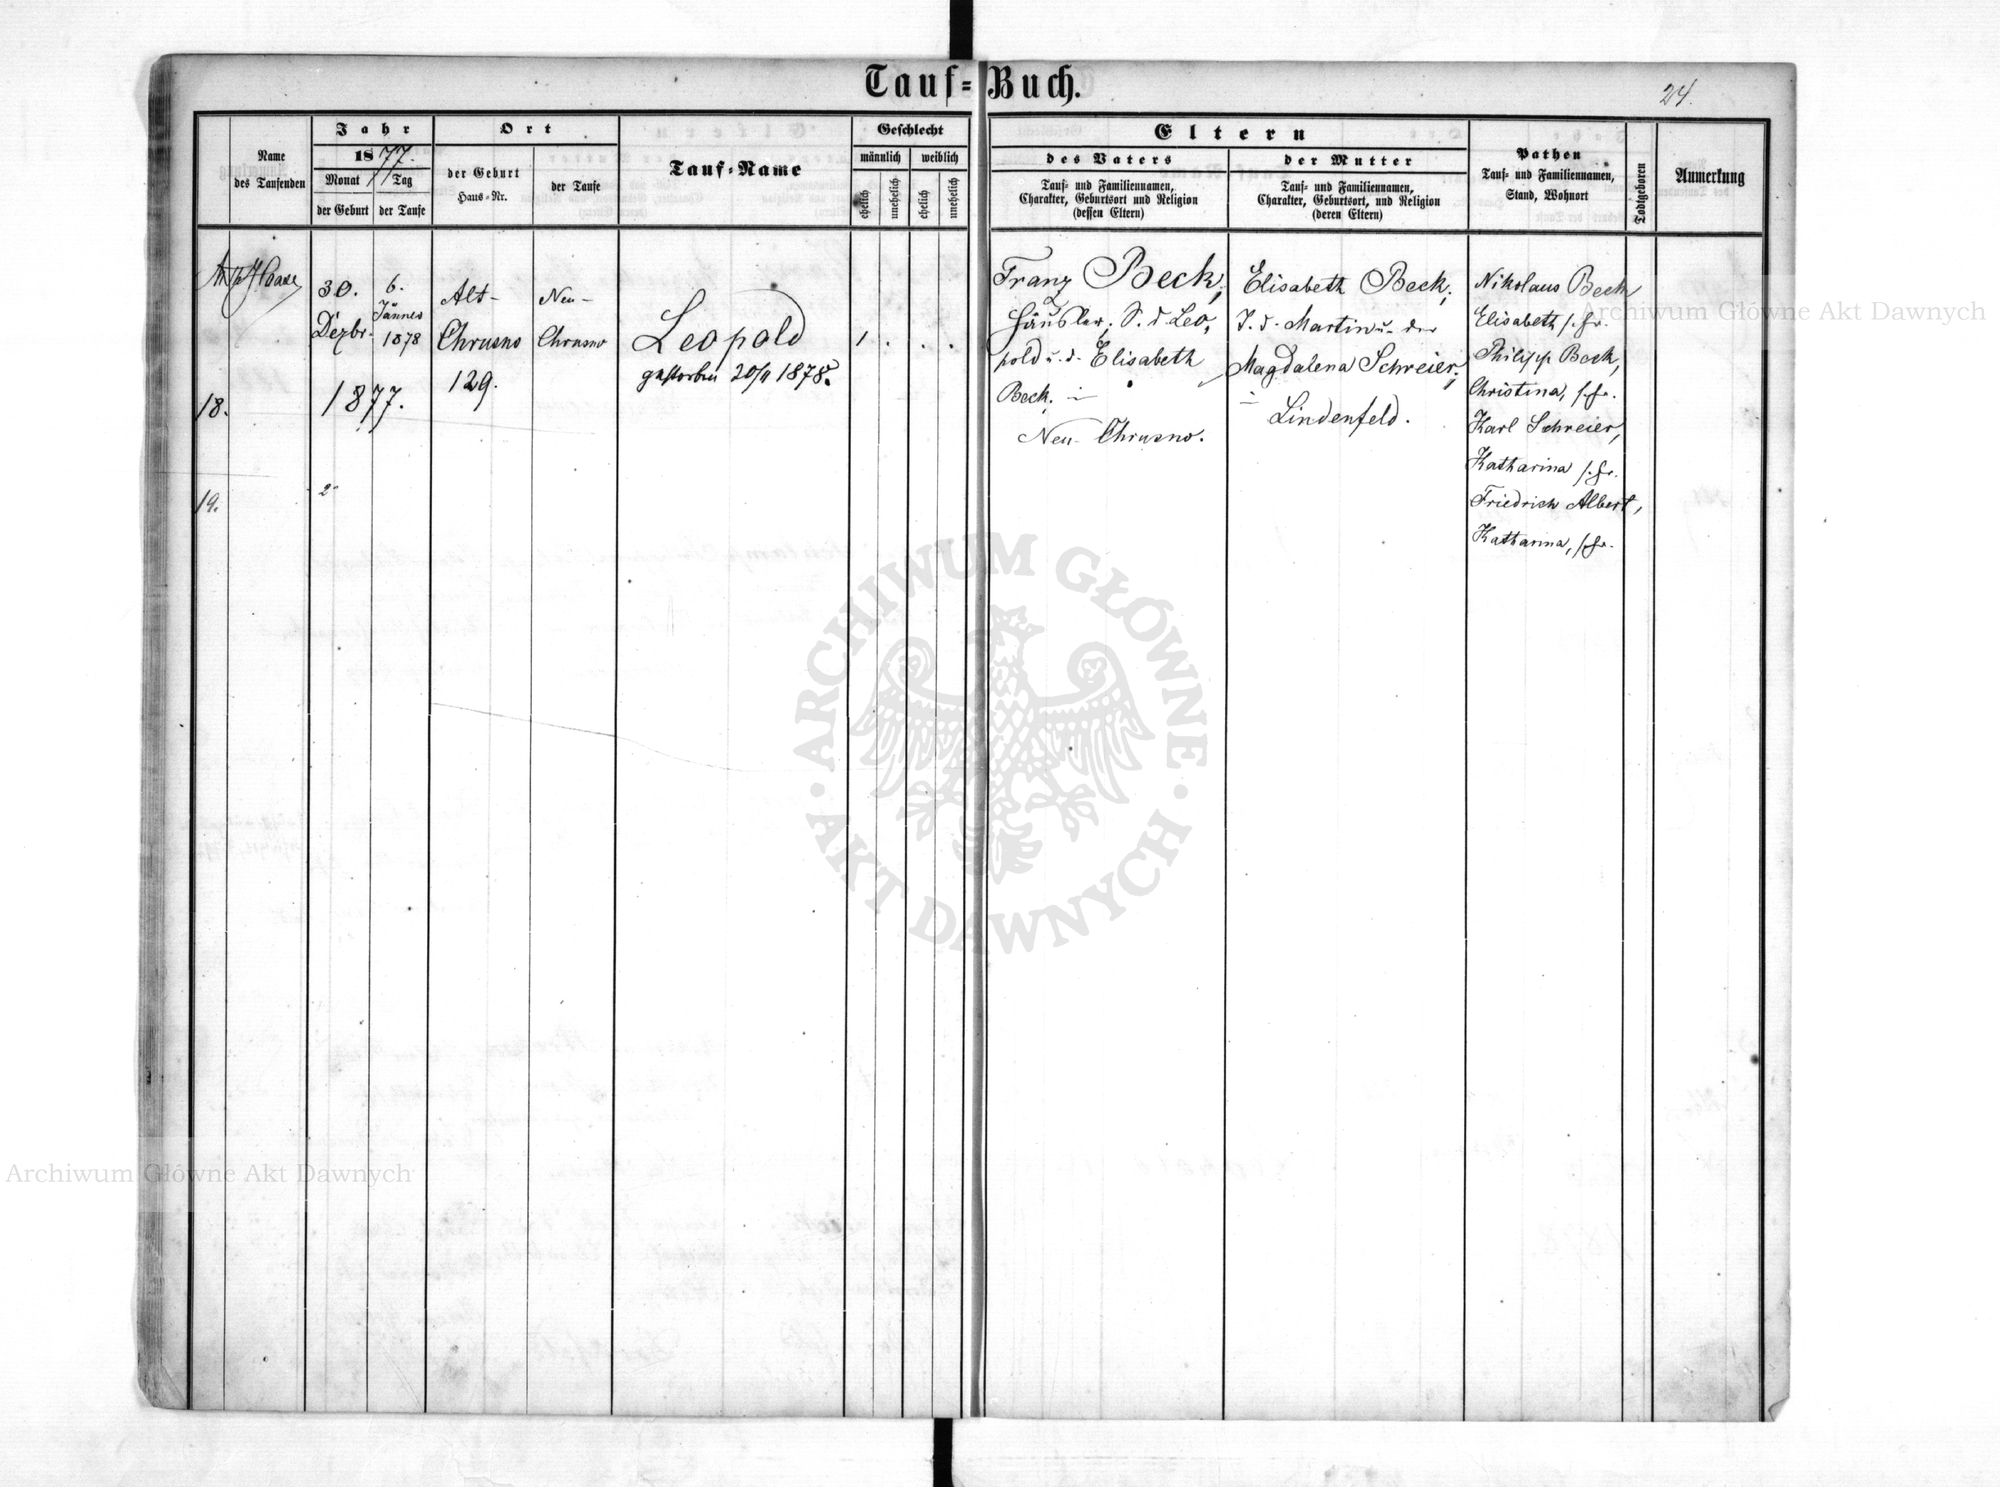 Tauf-Buch.
24.
Name
des Taufenden
Jahr
1877.
Monat
Tag
der Geburt
der Taufe
Ort
der Geburt
Haus-Nr.
der Taufe
Tauf-Name
Geschlecht
männlich
weiblich
ehelich
unehelich
ehelich
unehelich
Eltern
des Vaters
Tauf- und Familiennamen,
Charakter, Geburtsort und Religion
(dessen Eltern)
der Mutter
Tauf- und Familiennamen,
Charakter, Geburtsort, und Religion
(deren Eltern)
Pathen
Tauf- und Familiennamen,
Stand, Wohnort
Todtgeboren
Anmerkung
18.
30.
Dezbr.
1877.
6.
Jännes
1878
Alt-
Chrusno
129.
Neu-
Chrusno
Leopold
gestorben 20/11 1878.
1 . . .
Franz Beck,
Häusler, S. d. Leo-
pold u. d. Elisabeth
Beck.
Neu-Chrusno.
Elisabeth Beck,
T. d. Martin u. der
Magdalena Schreier,
Lindenfeld.
Nikolaus Beck
Elisabeth s. Fr.
Philipp Beck,
Christina, s. Fr.
Karl Schreier,
Katharina s. Fr.
Friedrich Albert,
Katharina, s. Fr.
19.
2
ARCHIWUM GŁÓWNE AKT DAWNYCH
Archiwum Główne Akt Dawnych
Archiwum Główne Akt Dawnych